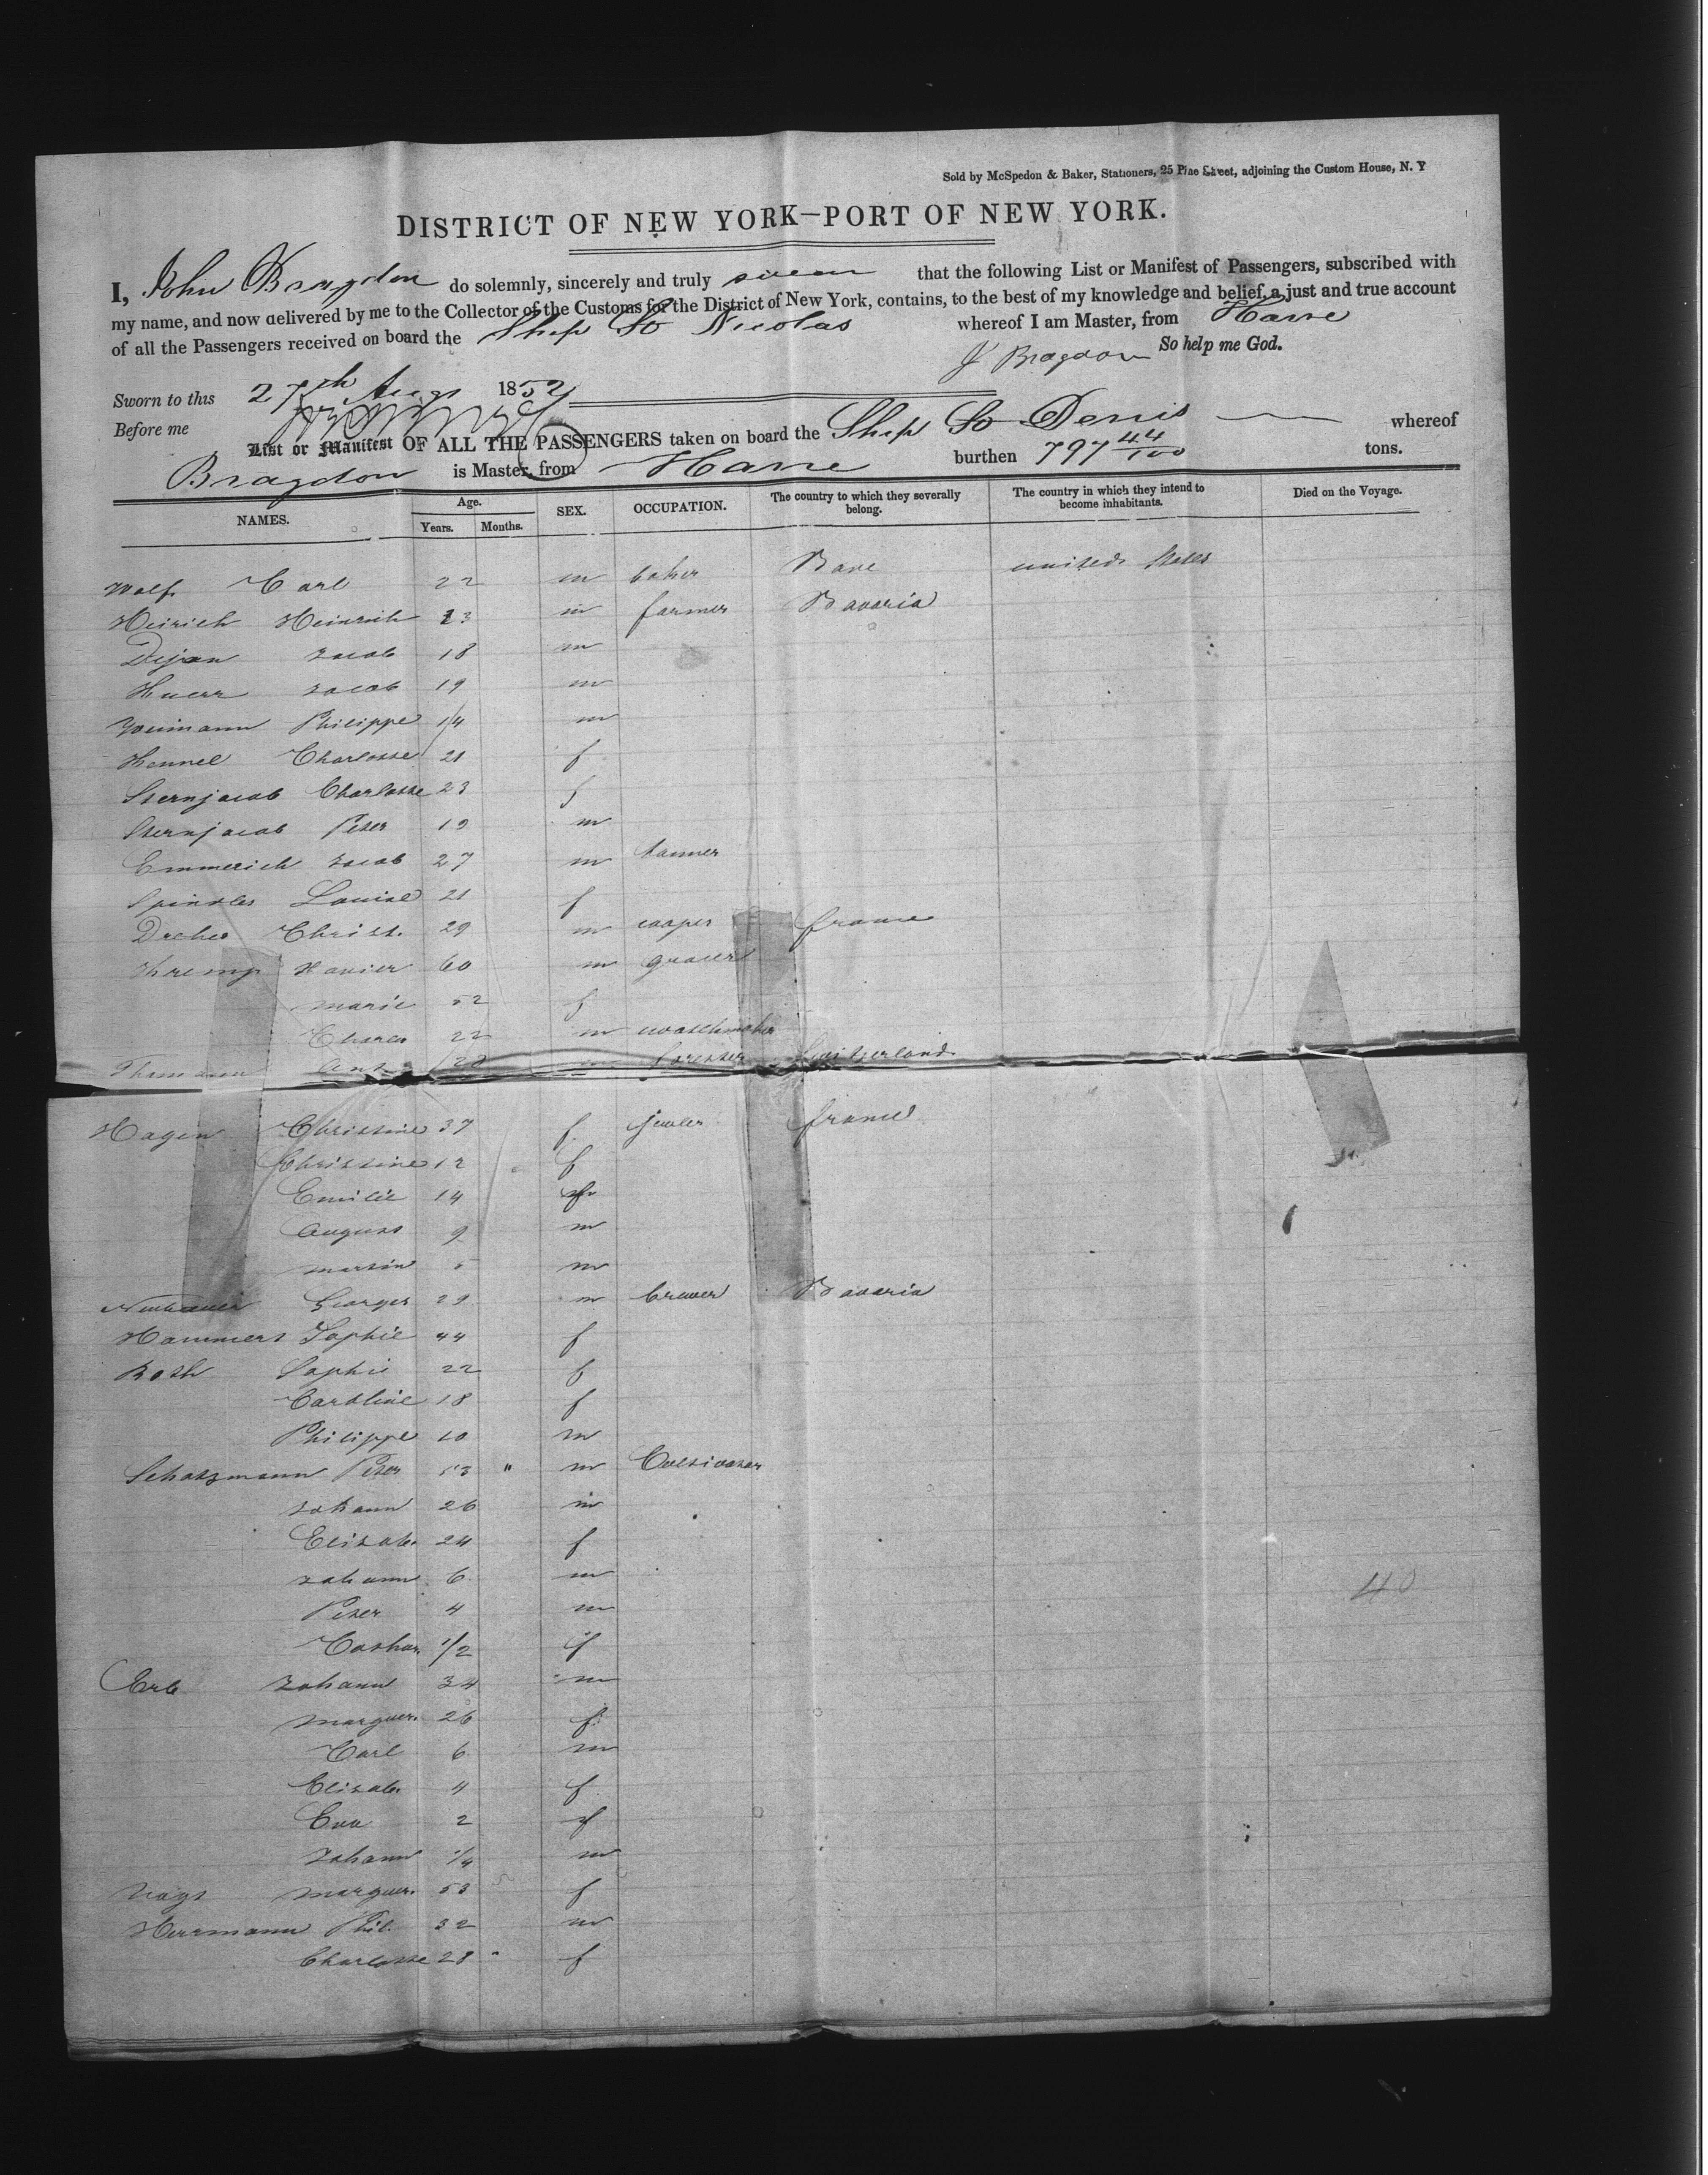 Sold by McSpedon & Baker, Stationers, 25 Pine Street, adjoining the Custom House, N. Y
DISTRICT OF NEW YORK—PORT OF NEW YORK.
I, John Bragdon do solemnly, sincerely and truly swear that the following List or Manifest of Passengers, subscribed with
my name, and now delivered by me to the Collector of the Customs for the District of New York, contains, to the best of my knowledge and belief, a just and true account
of all the Passengers received on board the Ship St Nicolas whereof I am Master, from Havre
So help me God.
J Bragdon
Sworn to this 27th Augt 1852
Before me
List or Manifest OF ALL THE PASSENGERS taken on board the Ship St Denis whereof
Bragdon is Master, from Havre burthen 797 44/100 tons.
NAMES. Age. Years. Months. SEX. OCCUPATION. The country to which they severally belong. The country in which they intend to become inhabitants. Died on the Voyage.
Wolf Carl 22 m baker Bave united States
Heirich Heinrich 23 m farmer Bavaria
Dejean Jacob 18 m
Huerr Jacob 19 m
Youmann Philippe 14 m
Hennel Charlotte 21 f
Sternjacob Charlotte 23 f
Sternjacob Peter 19 m
Emmerich Jacob 27 m tanner
Spindler Louise 21 f
Dreher Christ. 29 m cooper france
Kremp Xavier 60 m grocer
Marie 52 f
Charles 22 m watchmaker
Ant 28 m forester Switzerland
Hagen Christine 37 f. jeweler france
Christine 12 f
Emilie 14 f
August 9 m
Martin 5 m
Neubauer Georges 29 m brewer Bavaria
Hammert Sophie 44 f
Roth Sophie 22 f
Caroline 18 f
Philippe 10 m
Schatzmann Peter 53 " m Cultivator
Johann 26 m
Elisab. 24 f
Johann 6 m
Peter 4 m
Cathar. 1/2 f
Erb Johann 34 m
Marguer. 26 f.
Carl 6 m
Elisab. 4 f
Eva 2 f
Johann 1/4 m
Vogt Marguer. 53 f
Herrmann Phil. 32 m
Charlotte 28 " f
40